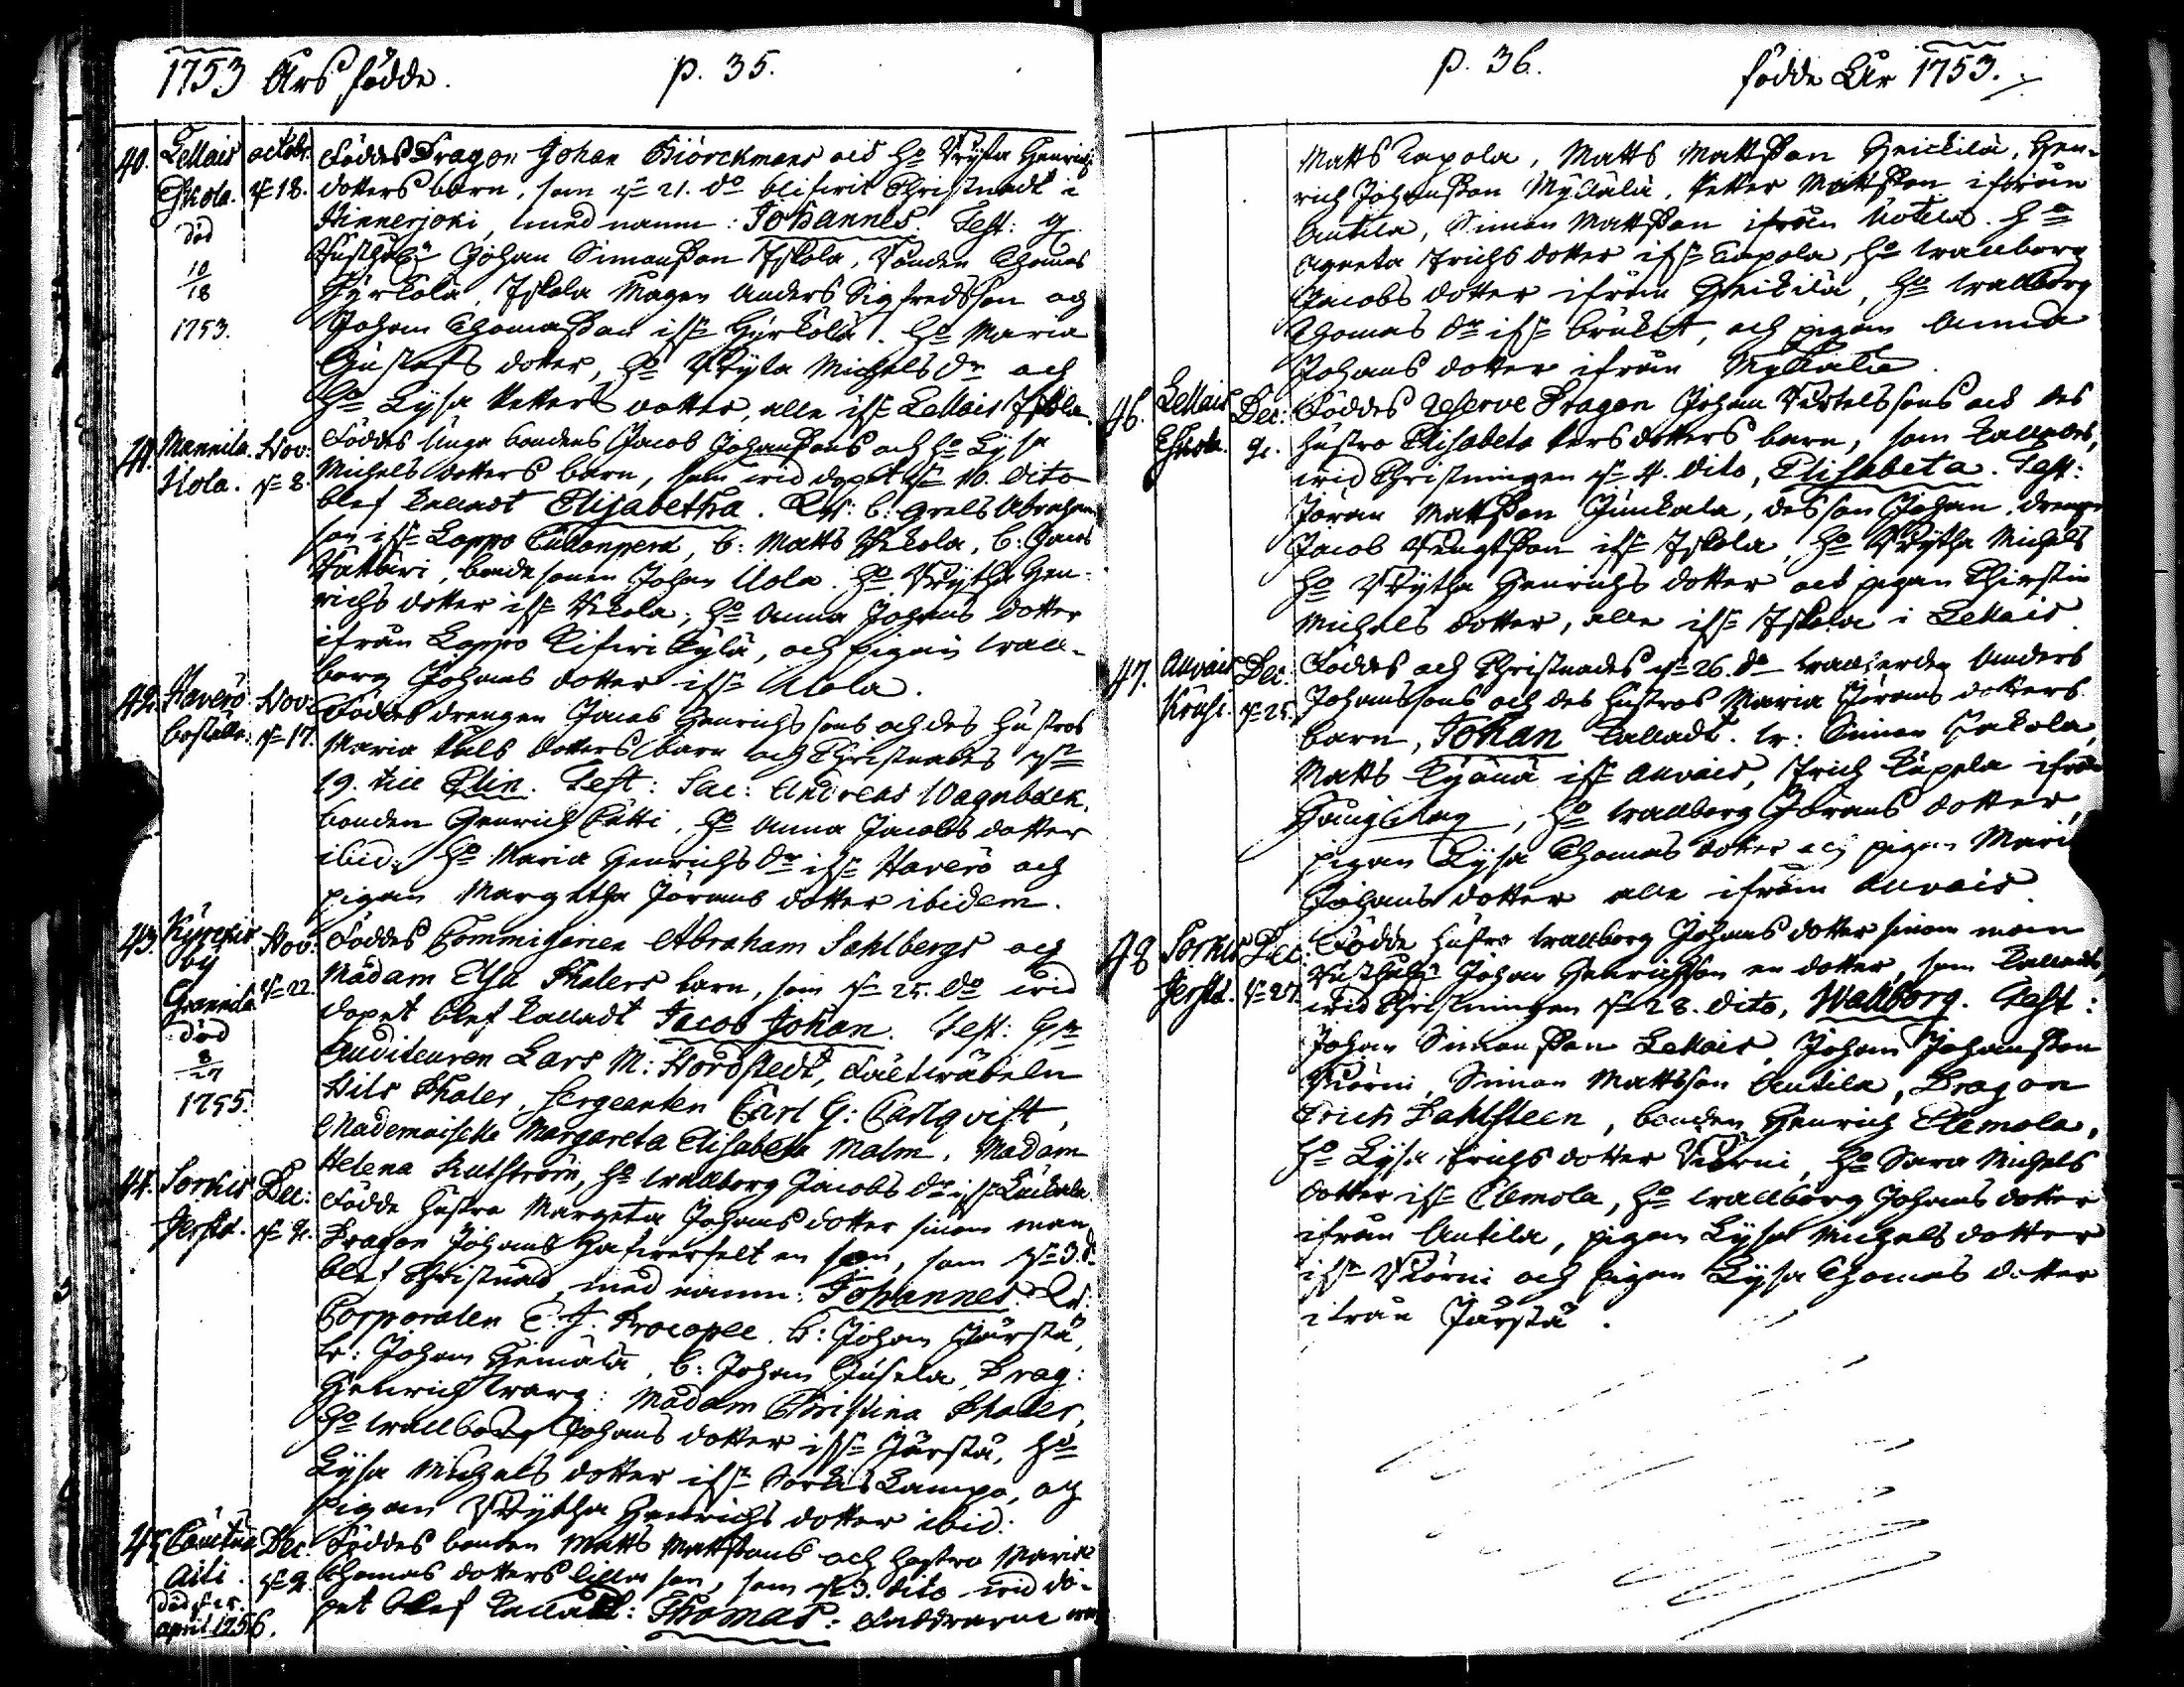 1753 Års födde. p. 35.
40. Lellais Iskola. död 10/18 1753.
octobr: d 18.
Föddes Dragon Johan Biörckmans och h:o Brytta Henrichs
dotters barn, som d 21. d:o blifwit Christnadt i
Hinnerjoki, med namn: Johannes. Test:
Johan Simonsson Iskola, Bonden Thomas
Hyrkölä, Iskola Magen Anders Sigfredsson och
Johan Thomasson ifr: Hyrkölä. h:o Maria
Gustafs dotter, h:o Brytta Michels dr och
h:o Lysa Petters dotter, alle ifr: Lellais Iskola.
41. Mannila Uola. Nov: d 8.
Föddes Unga bondens Jacob Johanssons och h:o Lysa
Michels dotters barn, som wid dopet d 10. dito
blef kalladt Elisabetha. b: Grels Abrahams
son ifr: Loppo, b: Matts, b: Jacob
, bondesonen Johan Uola. h:o Brytha Hen-
richs dotter ifr:, h:o Anna Johans dotter
ifrån Loppo, och pigan Wall-
borg Johans dotter ifr: Uola.
42. Haverö bostelle. Nov: d 17.
Föddes drengen Jacob Henrichssons och des hustros
Maria Påls dotters barn och Christnades d
19. Elin. Test: Sac: Andreas Wagnbäck,
bonden Henrich, h:o Anna Jacobs dotter
ibid: h:o Maria Henrichs dr ifr: Haverö och
pigan Margetha Jörans dotter ibidem.
43. by död 8/27 1755. Nov: d 22.
Föddes Commissarien Abraham Sahlbergs och
Madam Elsa Thalers barn, som d 25. d:o wid
dopet blef kalladt Jacob Johan. Test: H:r
Auditeuren Lars M: Nordstedt, Fältwäbeln
Nils Thaler, Sergeanten Carl G: Carlqvist,
Mademoiselle Margareta Elisabeta Malm, Madam
Helena, h:o Wallborg Jacobs dr ifr:
44. Sorkis Jersta. Dec: d 2.
Födde hustro Margeta Johans dotter sinom man
Dragon Johans en son, som d 3. d:o
blef Christnad, med namn: Johannes.
Corporalen C. J. Procopee, b: Johan Järstä,
b: Johan, b: Johan, Drag:
Henrich Warg: Madam Christina Thaler,
h:o Wallborg Johans dotter ifr: Järstä, h:o
Lysa Michels dotter ifr: Sorkis Lampo, och
pigan Brytha Henrichs dotter ibid:
45. död d 25. april 1756. Dec: d 2.
Föddes bonden Matts Mattssons och hustro Maria
Thomas dotters lilla son, som d 3. dito wid do-
pet blef kallad: Thomas: Faddrarne
p. 36. födde År 1753.
Matts Kapola, Matts Mattsson Heickilä, Hen-
rich Johansson Myllälä, Petter Mattsson ifrån
Anttila, Simon Mattsson ifrån. h:o
Agneta Erichs dotter ifr: Kapola, h:o Wallborg
Jacobs dotter ifrån Heickilä, h:o Wallborg
Thomas dr ifr: bruket, och pigan Anna
Johans dotter ifrån Myllälä.
46. Lellais Iskola. Dec: 2.
Föddes Reserve Dragon Johan Bertelssons och des
hustro Elisabeta dotters barn, som kallades,
wid Christningen d 4. dito, Elisabeta. Test:
Jöran Mattsson Junkala, des son Johan, drengen
Jacob Bengtsson ifr: Iskola, h:o Brytha Michels
h:o Brytha Henrichs dotter och pigan Christin
Michels dotter, alle ifr: Iskola i Lellais.
47. Auvais. Dec: d 25.
Föddes och Christnades d 26. d:o Anders
Johanssons och des hustros Maria Jörans dotters
barn, Johan kalladt. Simon
Matts ifr: Auvais, Erich ifrån
, h:o Wallborg Jörans dotter,
pigan Lysa Thomas dotter och pigan Mari
Johans dotter alle ifrån Auvais.
48. Sorkis Jersta. Dec: d 27.
Födde hustro Wallborg Johans dotter sinom man
Johan Henrichsson en dotter, som kallades,
wid Christningen d 28. dito, Wallborg. Test:
Johan Simonsson Lellais, Johan Johansson
Biörni, Simon Mattsson Anttila, Dragon
Erich Dahlsteen, bonden Henrich Clemola,
h:o Lysa Erichs dotter Biörni, h:o Sara Michels
dotter ifr: Clemola, h:o Wallborg Johans dotter
ifrån Anttila, pigan Lysa Michels dotter
ifr: Biörni och pigan Lysa Thomas dotter
ifrån Järstä.